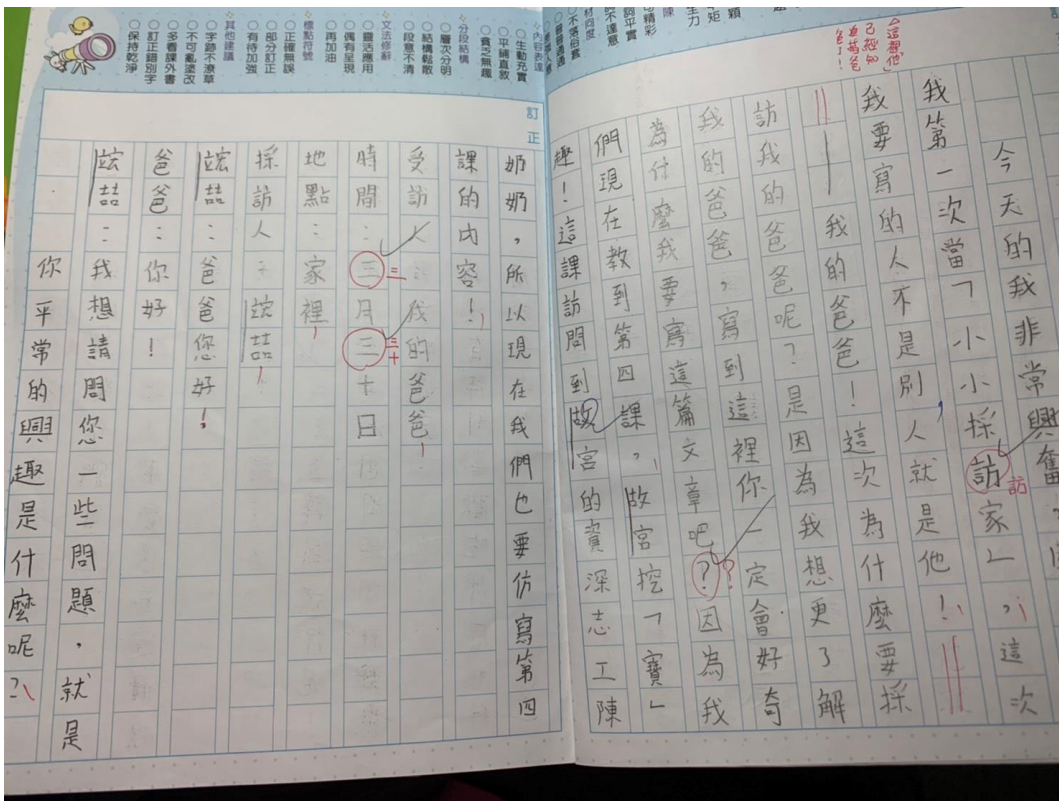 今天的我非常興奮，
我第一次當「小小採訪家」，這次
我要寫的人不是別人就是他！
——我的爸爸！這次為什麼要採
訪我的爸爸呢？是因為我想更了解
我的爸爸，寫到這裡你一定會好奇
為什麼我要寫這篇文章吧？因為我
們現在教到第四課，故宮挖「寶」
趣！這課訪問到故宮的資深志工陳
△這裡「他」
已經知
道是爸
爸！
訪
？
訂正
奶奶，所以現在我們也要仿寫第四
課的內容！
受訪人：我的爸爸
時間：三月三十日
三
三十
地點：家裡
採訪人：竑喆
竑喆：爸爸您好！
爸爸：你好！
竑喆：我想請問您一些問題，就是
你平常的興趣是什麼呢？
內容表達
○生動充實
○平鋪直敘
○貧乏無趣
分段結構
○層次分明
○結構鬆散
○段意不清
文法修辭
○靈活應用
○偶有呈現
○再加油
標點符號
○正確無誤
○部分訂正
○有待加強
其他建議
○字跡不潦草
○不可亂塗改
○多看課外書
○訂正錯別字
○保持乾淨